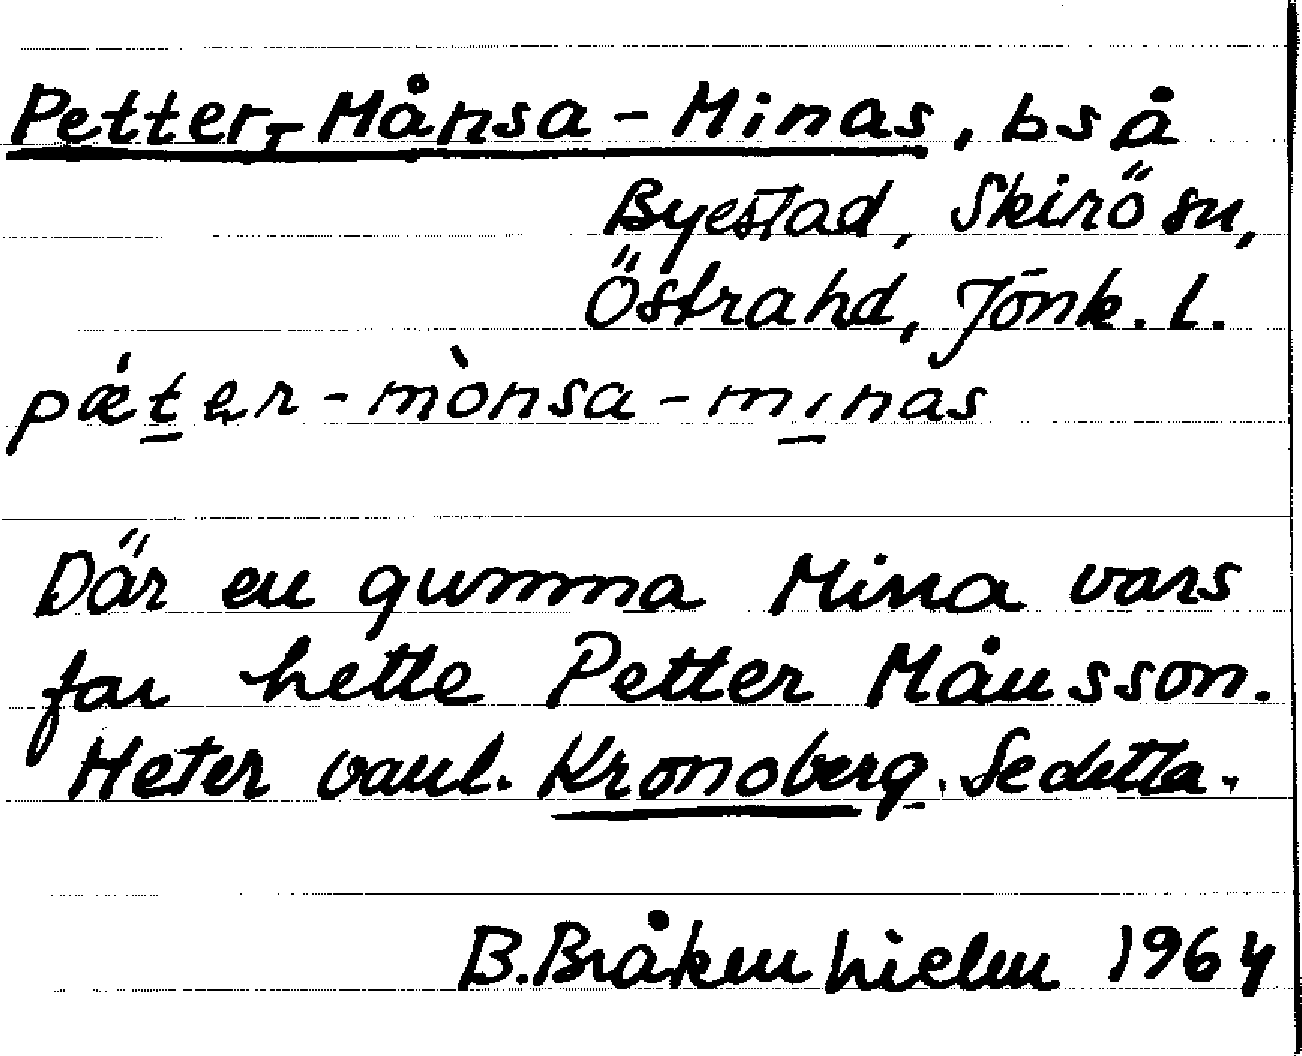 Petter-Månsa-Minas, bs å
Byestad, Skirö sn,
Östra hd, Jönk. l.
pǽter-mònsa-minas
Där en gumma Mina vars
far hette Petter Månsson.
Heter vanl. Kronoberg. Se detta.
B. Bråkenhielm 1964